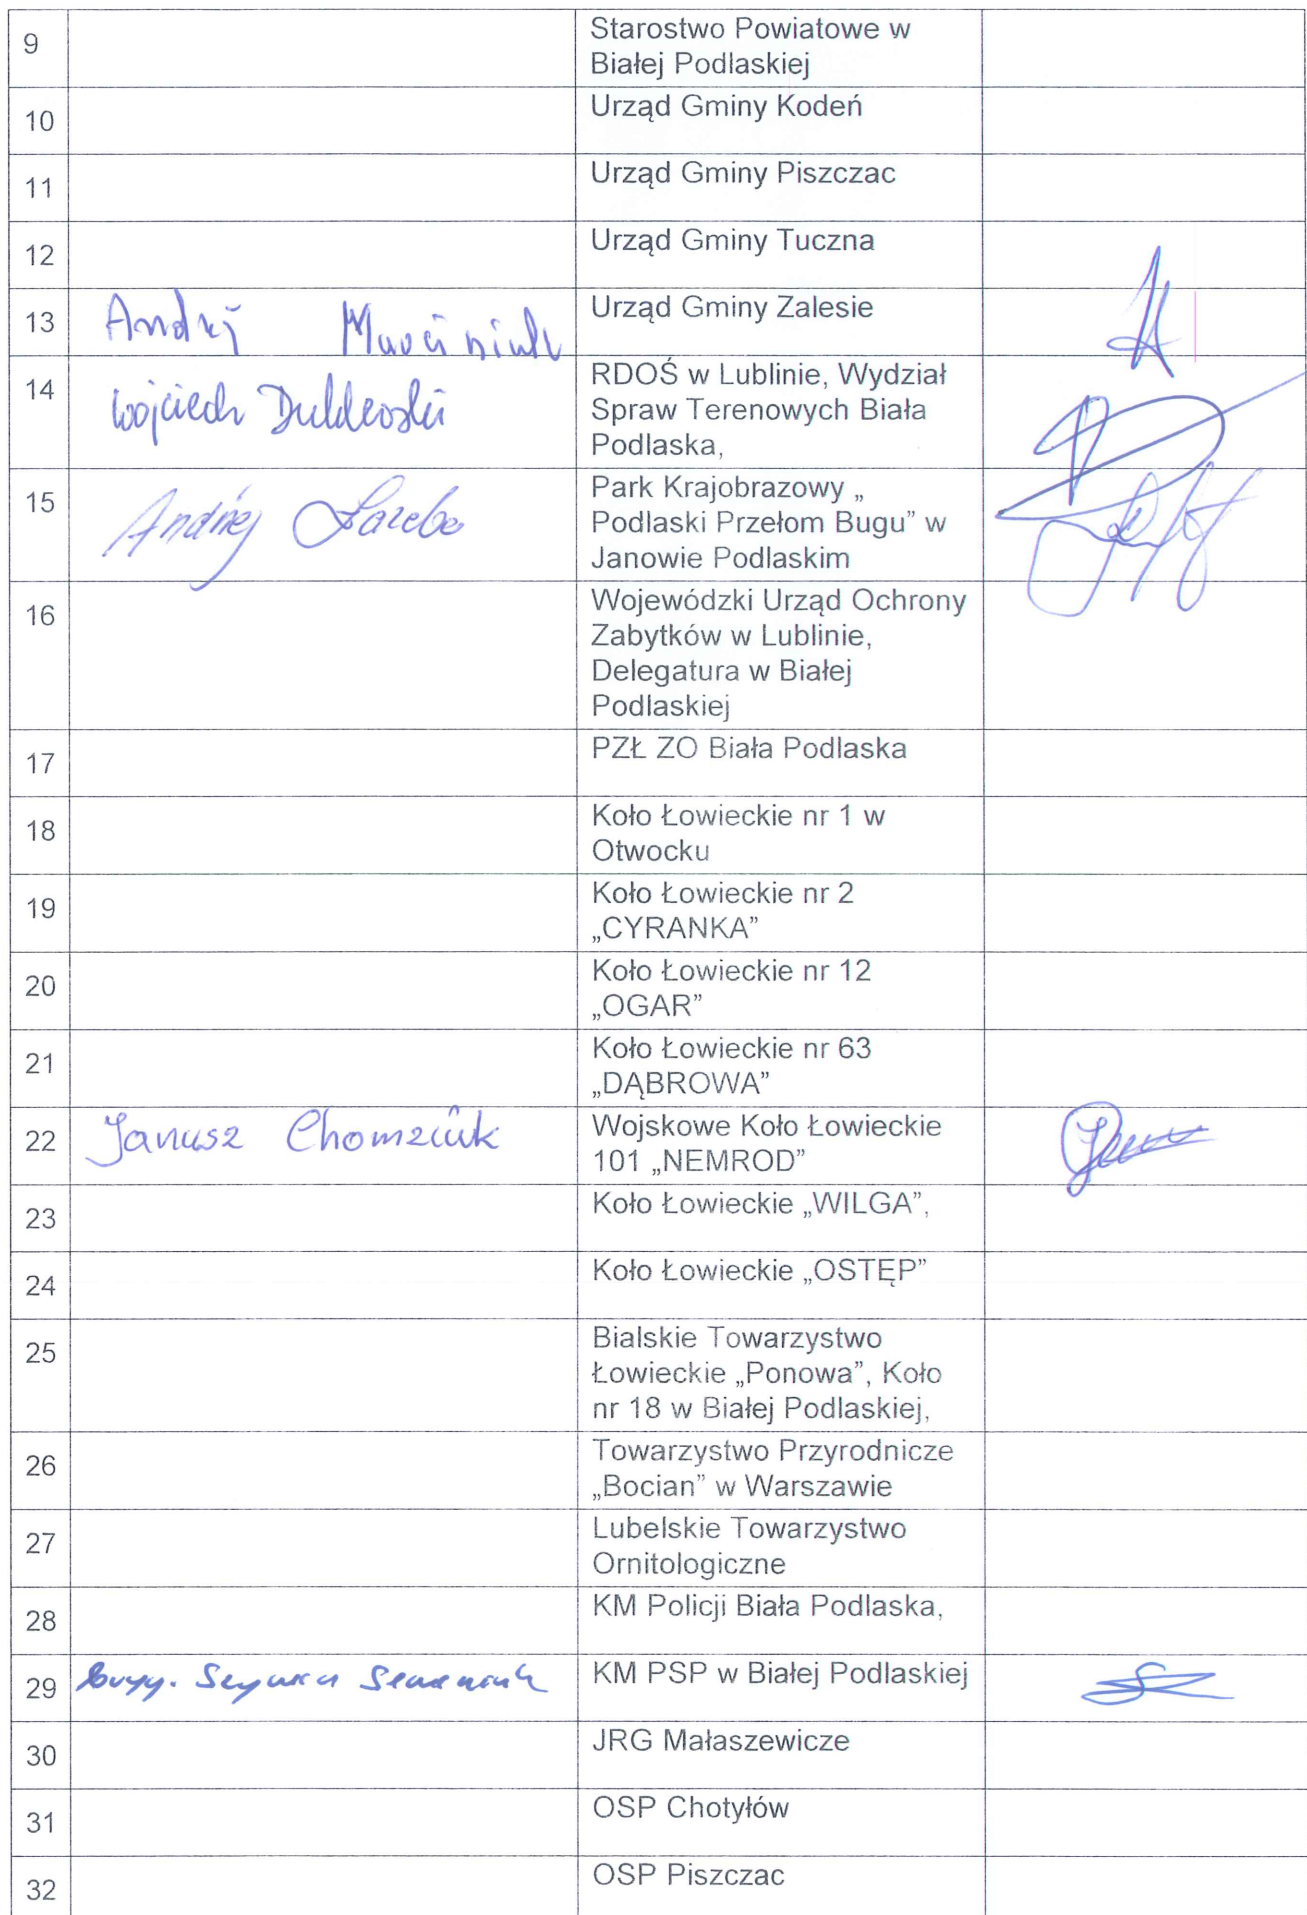 9 Starostwo Powiatowe w
Białej Podlaskiej
10 Urząd Gminy Kodeń
11 Urząd Gminy Piszczac
12 Urząd Gminy Tuczna
13 Andrzej Marciniuk Urząd Gminy Zalesie
14 Wojciech RDOŚ w Lublinie, Wydział
Spraw Terenowych Biała
Podlaska,
15 Andrzej Łazeba Park Krajobrazowy „
Podlaski Przełom Bugu” w
Janowie Podlaskim
16 Wojewódzki Urząd Ochrony
Zabytków w Lublinie,
Delegatura w Białej
Podlaskiej
17 PZŁ ZO Biała Podlaska
18 Koło Łowieckie nr 1 w
Otwocku
19 Koło Łowieckie nr 2
„CYRANKA”
20 Koło Łowieckie nr 12
„OGAR”
21 Koło Łowieckie nr 63
„DĄBROWA”
22 Janusz Chomziuk Wojskowe Koło Łowieckie
101 „NEMROD”
23 Koło Łowieckie „WILGA”,
24 Koło Łowieckie „OSTĘP”
25 Bialskie Towarzystwo
Łowieckie „Ponowa”, Koło
nr 18 w Białej Podlaskiej,
26 Towarzystwo Przyrodnicze
„Bocian” w Warszawie
27 Lubelskie Towarzystwo
Ornitologiczne
28 KM Policji Biała Podlaska,
29 KM PSP w Białej Podlaskiej
30 JRG Małaszewicze
31 OSP Chotyłów
32 OSP Piszczac